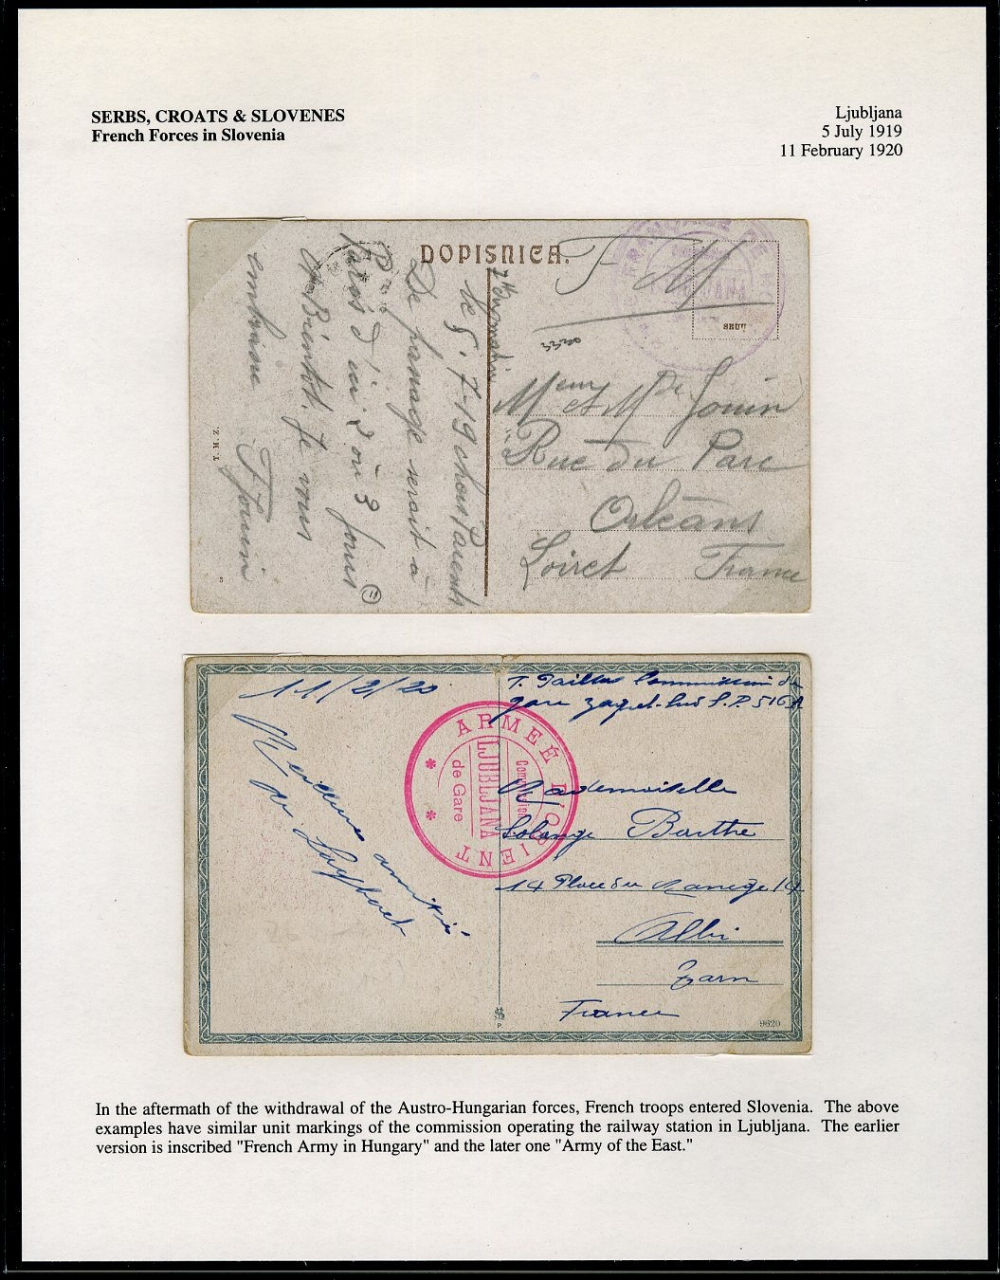 SERBS, CROATS & SLOVENES
French Forces in Slovenia
Ljubljana
5 July 1919
11 February 1920
DOPISNICA.
F M
le 5.7-19 chers Parents
De passage serait à
Paris d'ici 2 ou 3 jours
A Bientôt. Je vous
embrasse Jouin
et M Jouin
Rue du Parc
Orléans
Loiret France
T. M. Z.
11/2/20
gare S.P. 516A
ARMEÉ D'ORIENT
Commission
LJUBLJANA
de Gare
Meilleures amitiés
de Laybach
Mademoiselle
Solange Barthe
14 Place du Manège 14
Albi
Tarn
France
P
9620
In the aftermath of the withdrawal of the Austro-Hungarian forces, French troops entered Slovenia. The above
examples have similar unit markings of the commission operating the railway station in Ljubljana. The earlier
version is inscribed "French Army in Hungary" and the later one "Army of the East."